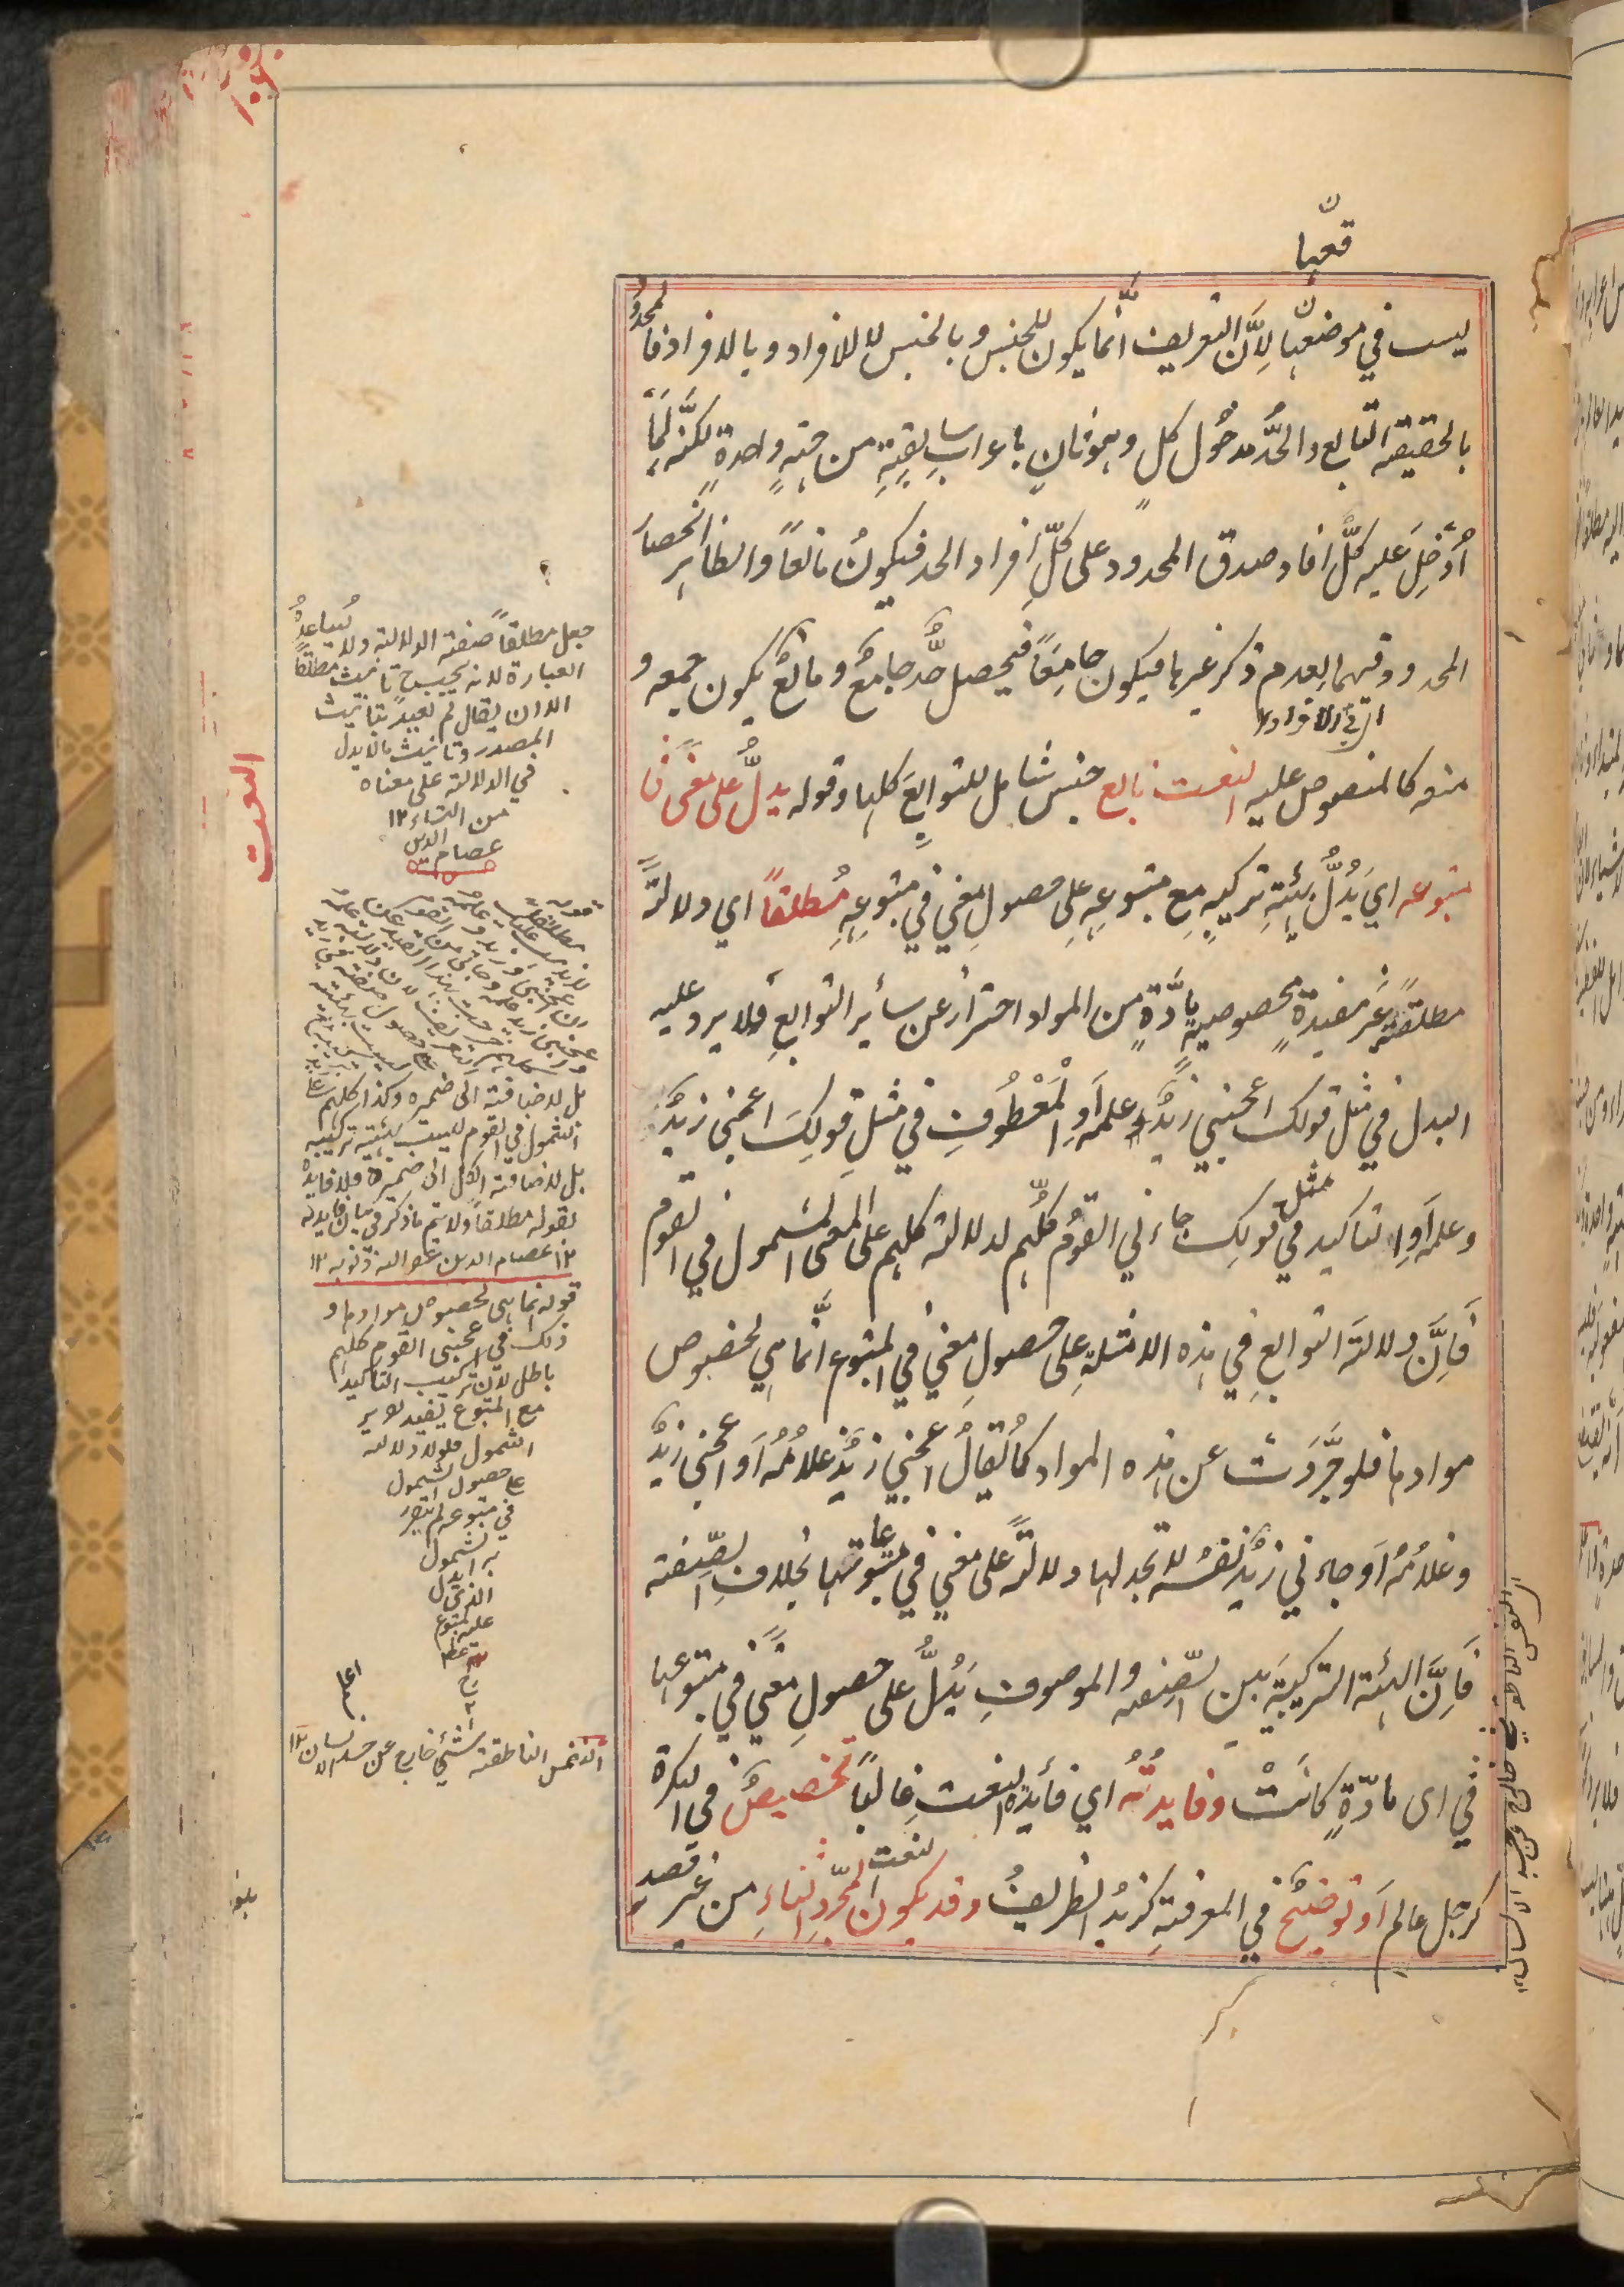 قعها
ليست في موضعها لِاَنَّ التعريف انّما يكون للجنس وبالجنس لا للافراد وبالافراد فالمحدود
بالحقيقة التابع والحدُّ مدخُول كل وهو ثانٍ باعراب سابقهِ من جهةٍ واحدةٍ لكنّه لمّا
اُدْخِلَ عليه كلُّ افاد صدق المحدود على كلِّ افراد الحد فيكونُ مانعاً والظاهر انحصار
المحدود فيها لعدم ذكر غيرها فيكون جامِعًا فيحصل حدٌّ جامعٌ ومانعٌ يكون جمعه و
منعه كالمنصوص عليه النعت تابع جنس شامل للتوابع كلها وقوله يدلُّ على معنًى في
متبوعه اي يَدُلُّ بهيئةِ تركيبهِ مع متبوعهِ على حصولِ معنًي في متبوعِهِ مُطلقاً اي دلالةً
مطلقةً غيرَ مقيدةٍ بخصوصيةِ مادَّةٍ من المواد احترازٌ عن سائر التوابعِ فلا يرد عليه
البدل في مثل قولك اعجبني زيدٌ علمه اَو المَعْطُوفِ في مثلِ قولِكَ اعجبني زيدٌ
وعلمه اَوِ التاكيد في مثل قولِك جاءني القومُ كلُّهم لدلالة كلهم على المعنى الشمول في القوم
فَاِنَّ دلالةَ التوابعِ في هذه الامثلةِ على حصولِ معنًي في المتبوع انَّما هي لخصوص
موادها فلو جُرَّدَتْ عن هذه المواد كما يُقالُ اعجبني زيدٌ غلامُهُ اَو اعجبني زيدٌ
وغلامُهُ اَو جاءني زيدٌ نفسُه لا تجد لها دلالةً على معنًي في متبوعاتها بخلافِ الصّفة
فَاِنَّ الهيئة التركيبيّة بين الصّفة والموصوفِ يَدُلُّ على حصولِ معنًي في متبوعها
في اى مادّةٍ كانَتْ وفايدتُهُ اي فأيدة النعت غالباً تخصيصٌ في النكرة
كرجل عالم اَو توضيحٌ في المعرفةِ كزيدٌ الظريفُ وقد يكون النعت لمجرّد الثناءِ من غير قصد
النعت
جعل مطلقاً صفة الدلالة ولا يُساعدُهُ
العبارة لانه يجب ح تانيث مطلقًا
الا ان يقال لم يعبد بتانيث
المصدر وتانيث مالا يدل
في الدلالة على معناه
من التاء ١٢
عصام الدين
بل لاضافته الى ضميره وكذا كلهم على
الشمول في القوم ليست بهيئة تركيبه
بل لاضافة الكل الى ضميره فلا فايدة
لقوله مطلقاً ولا يتم ما ذكر في بيان فايدته
١٢ عصام الدين غفر الله ذنوبه ١٢
قوله انما هى لخصوص موادها و
ذلك في اعجبني القوم كلهم
باطل لان تركيب التاكيد
مع المتبوع يفيد تقرير
الشمول فلولا دلالته
على حصول الشمول
في متبوعه لم يتقرر
به الشمول
النفس الناطقة شئ خارج عن جسد الانسان ١٢